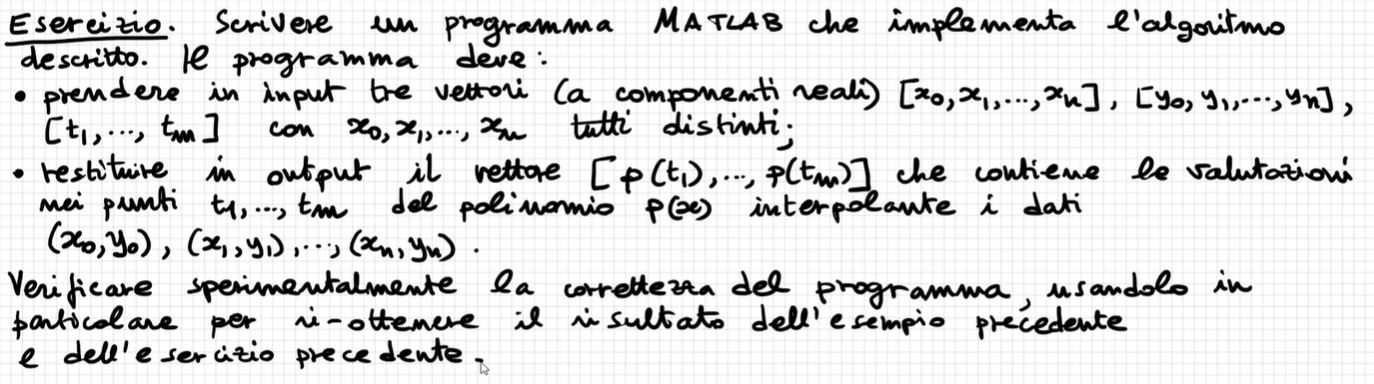 Esercizio. Scrivere un programma MATLAB che implementa l'algoritmo
descritto. Il programma deve:
• prendere in input tre vettori (a componenti reali) [x₀,x₁,...,xₙ], [y₀,y₁,...,yₙ],
[t₁,...,tₘ] con x₀,x₁,...,xₙ tutti distinti;
• restituire in output il vettore [p(t₁),...,p(tₘ)] che contiene le valutazioni
nei punti t₁,...,tₘ del polinomio p(x) interpolante i dati
(x₀,y₀), (x₁,y₁),...,(xₙ,yₙ).
Verificare sperimentalmente la correttezza del programma, usandolo in
particolare per ri-ottenere il risultato dell'esempio precedente
e dell'esercizio precedente.